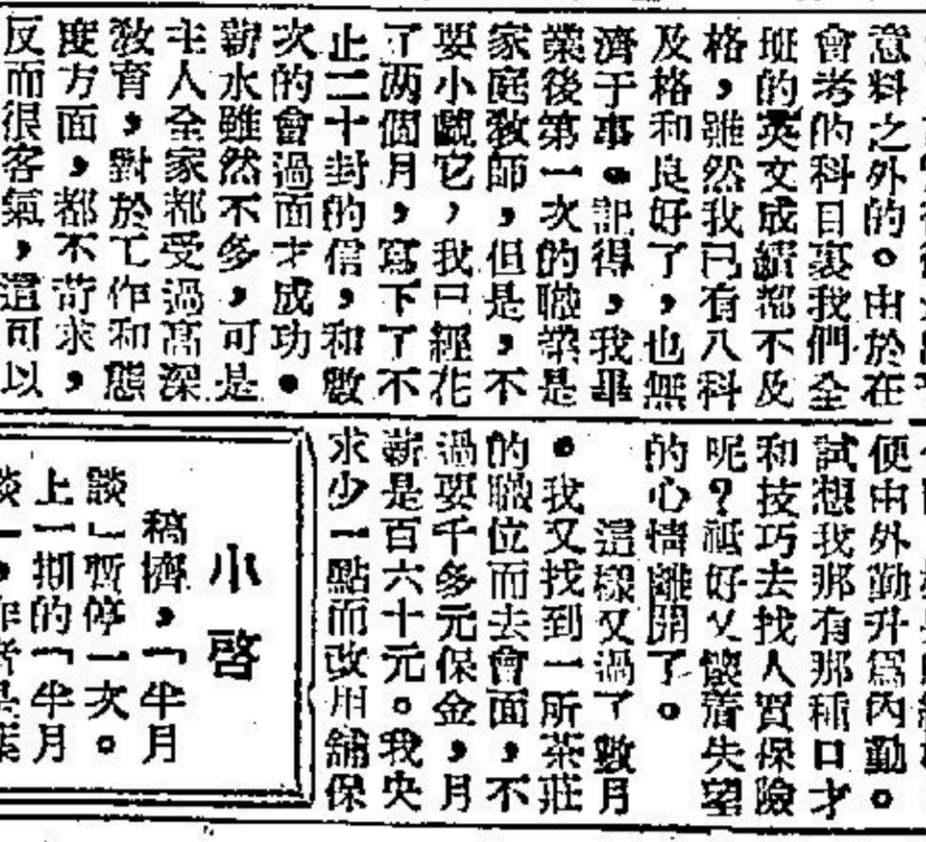 意料之外的。由於在
會考的科目裏我們全
班的英文成績都不及
格,雖然我已有八科
及格和良好了,也無
濟于事。記得,我畢
業後第一次的職業是
家庭教師,但是,不
要小覷它,我已經花
了两個月,寫下了不
止二十封的信,和數
次的會過面才成功。
薪水雖然不多,可是
主人全家都受過高深
教育,對於工作和態
度方面,都不苛求,
反而很客氣,這可以
便由外勤升爲內勤。
試想我那有那種口才
和技巧去找人買保險
呢?祗好又懷着失望
的心情離開了。
這樣又過了數月
。我又找到一所茶莊
的職位而去會面,不
過要千多元保金,月
薪是百六十元。我央
求少一點而改用舖保
小啓
稿擠,「半月
談」暫停一次。
上一期的「半月